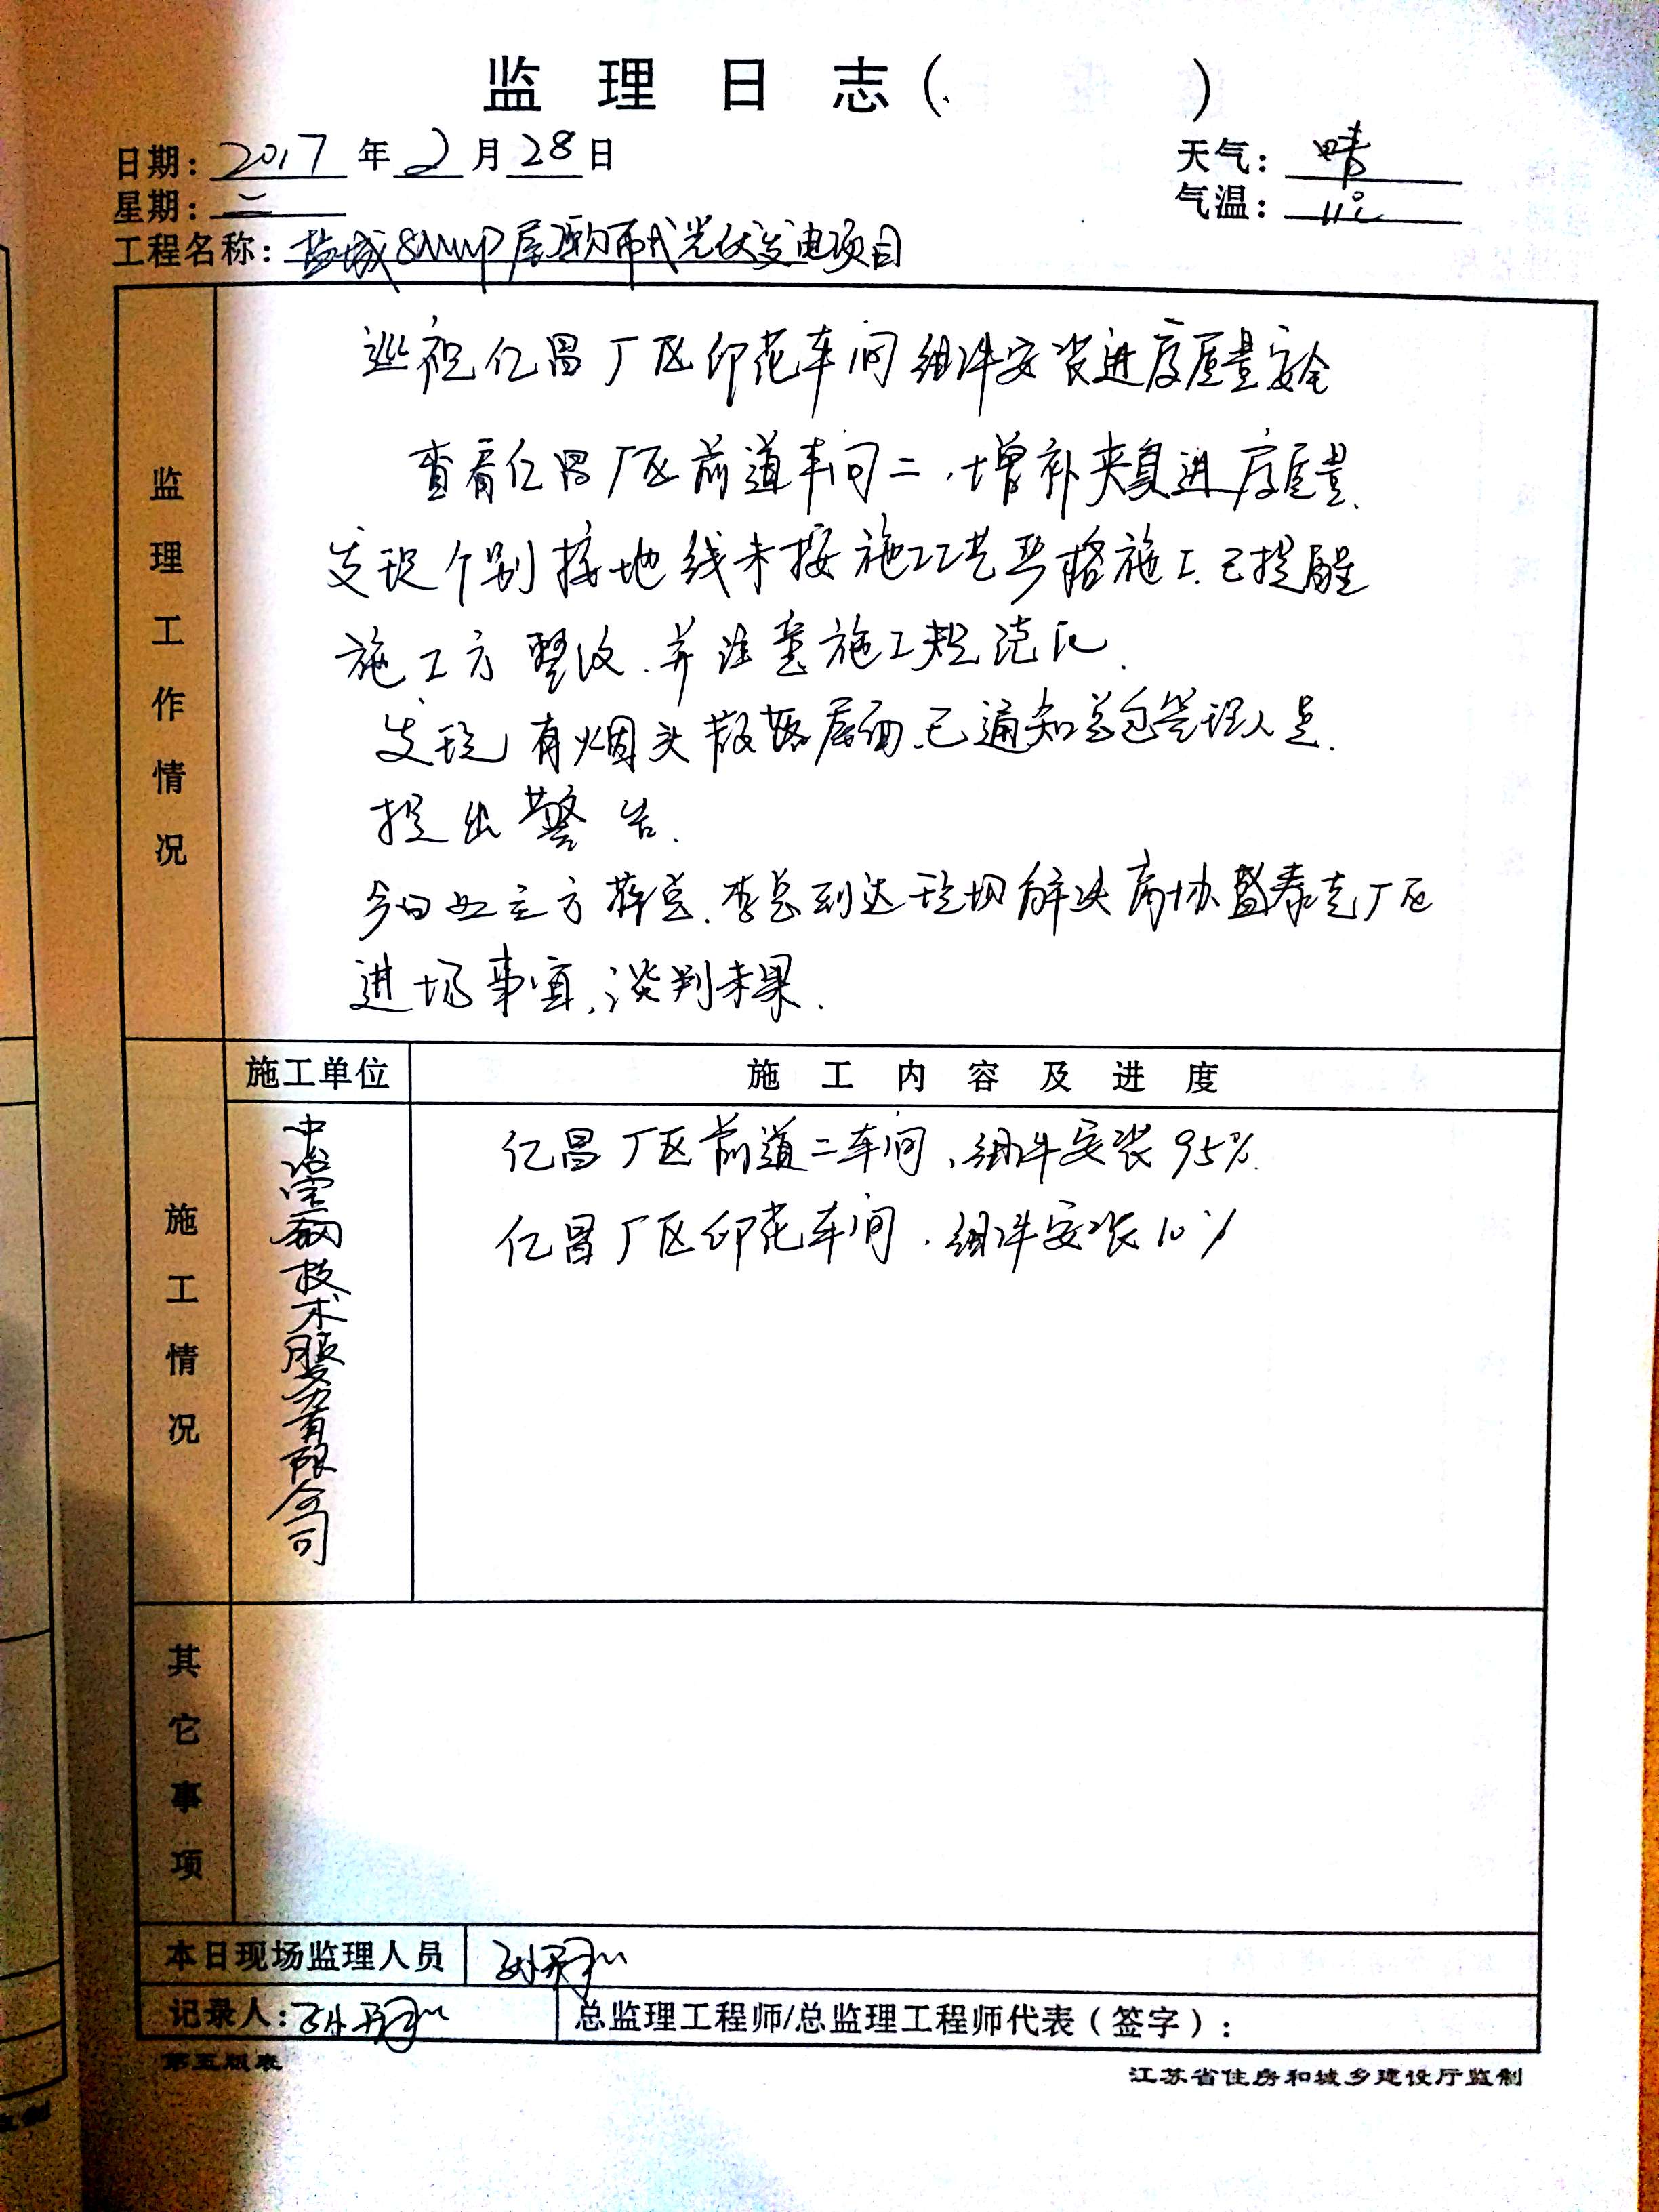 监理日志( )
日期: 2017 年 2 月 28 日 天气: 晴
星期: 二 气温: 11℃
工程名称: 盐城8MWP屋顶分布式光伏发电项目
监理工作情况
巡视亿昌厂区印花车间组件安装进度质量安全
查看亿昌厂区前道车间二,增补夹具进度质量.
发现个别接地线未按施工工艺严格施工.已提醒
施工方整改.并注意施工规范化.
发现有烟头散落屋面、已通知总包管理人员.
提出警告.
今日业主方薛总.李总到达现场解决商协盛泰克厂区
进场事宜,谈判未果.
施工单位 施工内容及进度
施工情况
中冶宝钢技术服务有限公司
亿昌厂区前道二车间,组件安装95%.
亿昌厂区印花车间,组件安装10%
其它事项
本日现场监理人员 孙
记录人: 孙 总监理工程师/总监理工程师代表(签字):
第五版表 江苏省住房和城乡建设厅监制